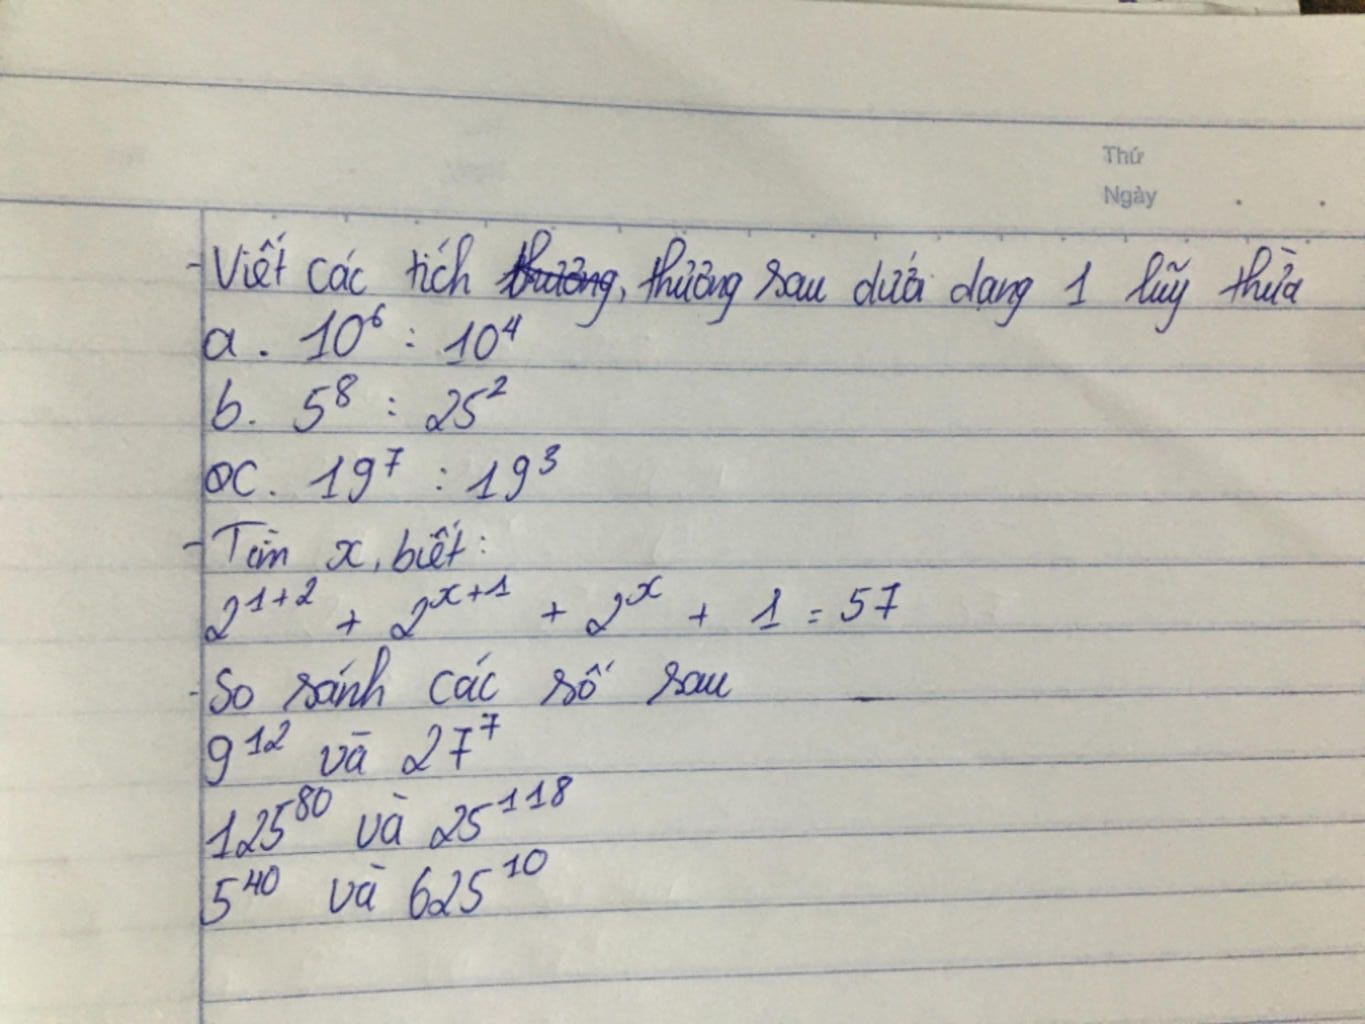 Thứ
Ngày
- Viết các tích thương, thương sau dưới dạng 1 lũy thừa
a. 10⁶ : 10⁴
b. 5⁸ : 25²
c. 19⁷ : 19³
- Tìm x, biết:
2¹⁺² + 2ˣ⁺¹ + 2ˣ + 1 = 57
- So sánh các số sau
9¹² và 27⁷
125⁸⁰ và 25¹¹⁸
5⁴⁰ và 625¹⁰